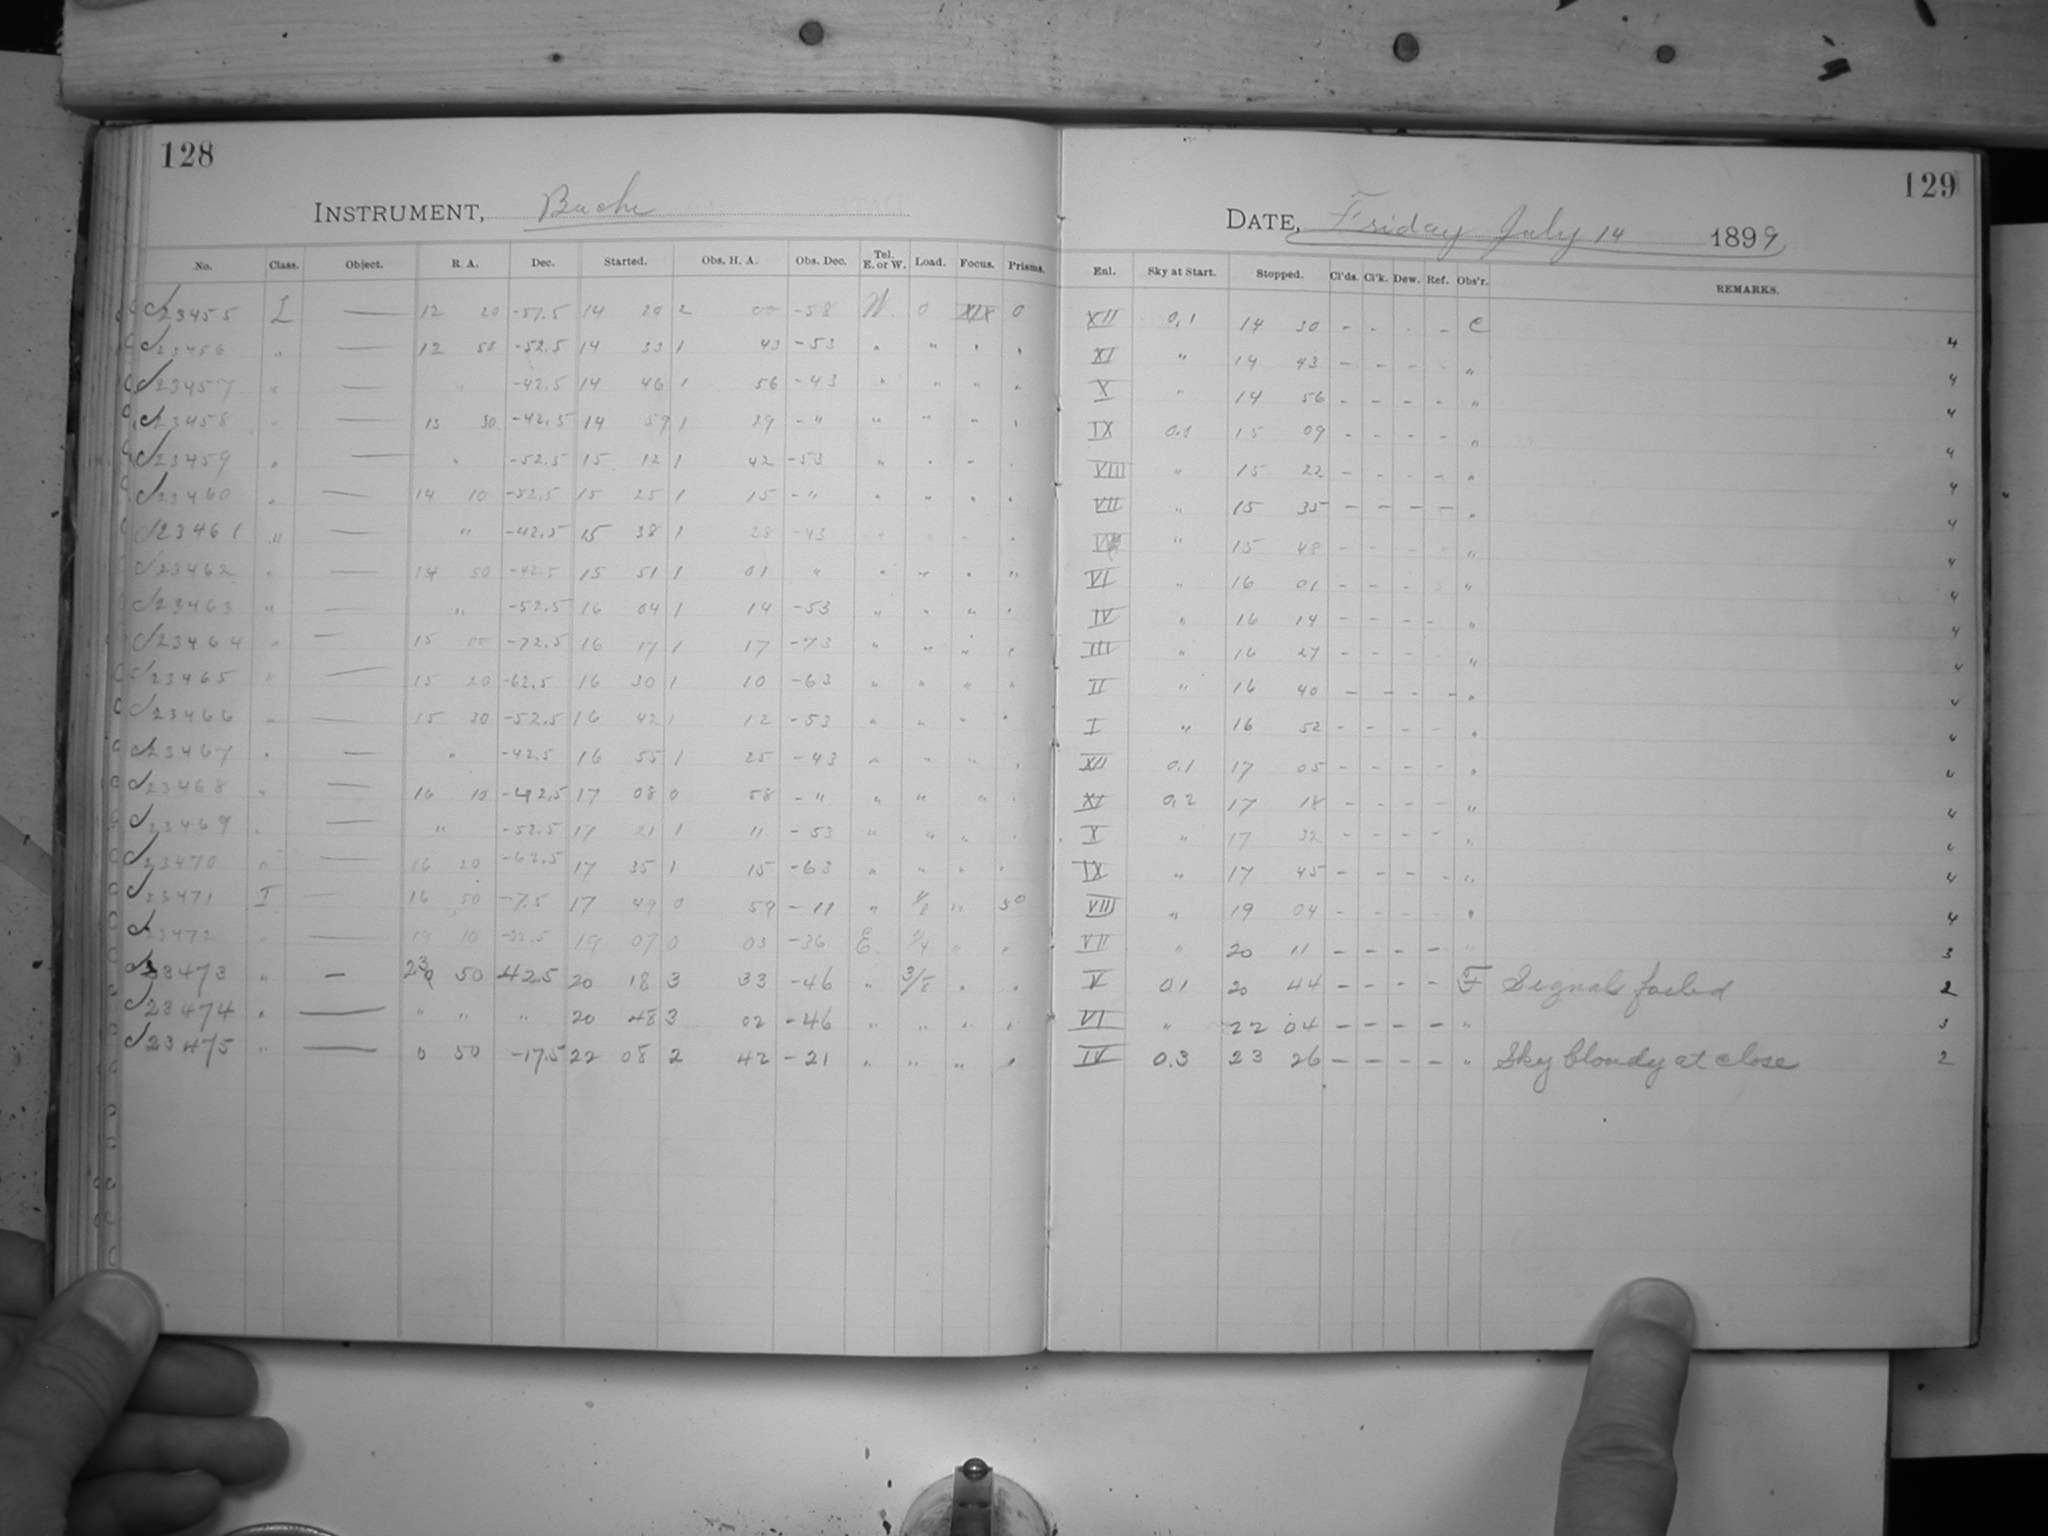 128
INSTRUMENT, Bache
No. Class. Object. R. A. Dec. Started. Obs. H. A. Obs. Dec. Tel. E. or W. Load. Focus. Prisms.
23455 L — 12 20 -57.5 14 20 2 00 -58 W 0 XIX 0
23456 " — 12 50 -52.5 14 33 1 43 -53 " " " "
23457 " — " -42.5 14 46 1 56 -43 " " " "
23458 " — 13 30 -42.5 14 59 1 29 - " " " " "
23459 " — " -52.5 15 12 1 42 -53 " " " "
23460 " — 14 10 -52.5 15 25 1 15 - " " " " "
23461 " — " -42.5 15 38 1 28 -43 " " " "
23462 " — 14 50 -42.5 15 51 1 01 " " " " "
23463 " — " -52.5 16 04 1 14 -53 " " " "
23464 " — 15 00 -72.5 16 17 1 17 -73 " " " "
23465 " — 15 20 -62.5 16 30 1 10 -63 " " " "
23466 " — 15 30 -52.5 16 42 1 12 -53 " " " "
23467 " — " -42.5 16 55 1 25 -43 " " " "
23468 " — 16 10 -42.5 17 08 0 58 - " " " " "
23469 " — " -52.5 17 21 1 11 -53 " " " "
23470 " — 16 20 -62.5 17 35 1 15 -63 " " " "
23471 I — 16 50 -7.5 17 49 0 59 -11 " 1/8 " 5°
23472 " — 19 10 -32.5 19 07 0 03 -36 E. 1/4 " "
23473 " — 23 50 -42.5 20 18 3 33 -46 " 3/8 " "
23474 " — " " " 20 48 3 02 -46 " " " "
23475 " — 0 50 -17.5 22 08 2 42 -21 " " " "
129
DATE, Friday July 14 1899
Enl. Sky at Start. Stopped. Cl'ds. Cl'k. Dew. Ref. Obs'r. REMARKS.
XII 0.1 14 30 - - - - C 4
XI " 14 43 - - - - " 4
X " 14 56 - - - - " 4
IX 15 09 - - - - " 4
VIII " 15 22 - - - - " 4
VII " 15 35 - - - - " 4
" 15 48 - - - - " 4
VI " 16 01 - - - - " 4
IV " 16 14 - - - - " 4
III " 16 27 - - - - " 4
II " 16 40 - - - - " 4
I " 16 52 - - - - " 4
XII 0.1 17 05 - - - - " 4
XI 0.2 17 18 - - - - " 4
X " 17 32 - - - - " 4
IX " 17 45 - - - - " 4
VIII " 19 04 - - - - " 4
VII " 20 11 - - - - " 3
V 0.1 20 44 - - - - F Signal failed 2
VI " 22 04 - - - - " 3
IV 0.3 23 26 - - - - " Sky cloudy at close 2